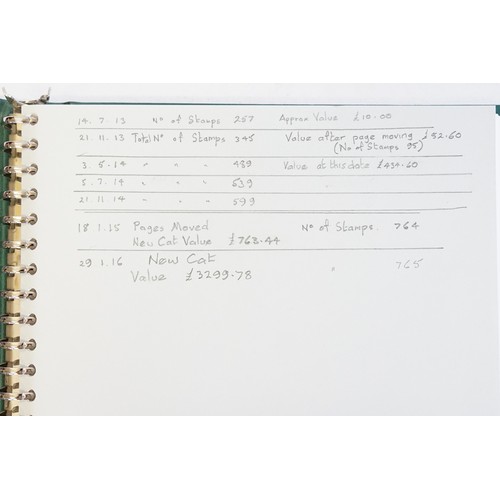 14. 7. 13 Nº of Stamps 257 Approx Value £10.00
21. 11. 13 Total Nº of Stamps 345 Value after page moving £52.60
(No of Stamps 95)
3. 5. 14 " " " 489 Value at this date £434.60
5. 7. 14 " " " 539 "
21. 11. 14 " " " 599
18 1. 15 Pages Moved Nº of Stamps. 764
New Cat Value £768.44
29 1. 16 New Cat " 765
Value £3299.78